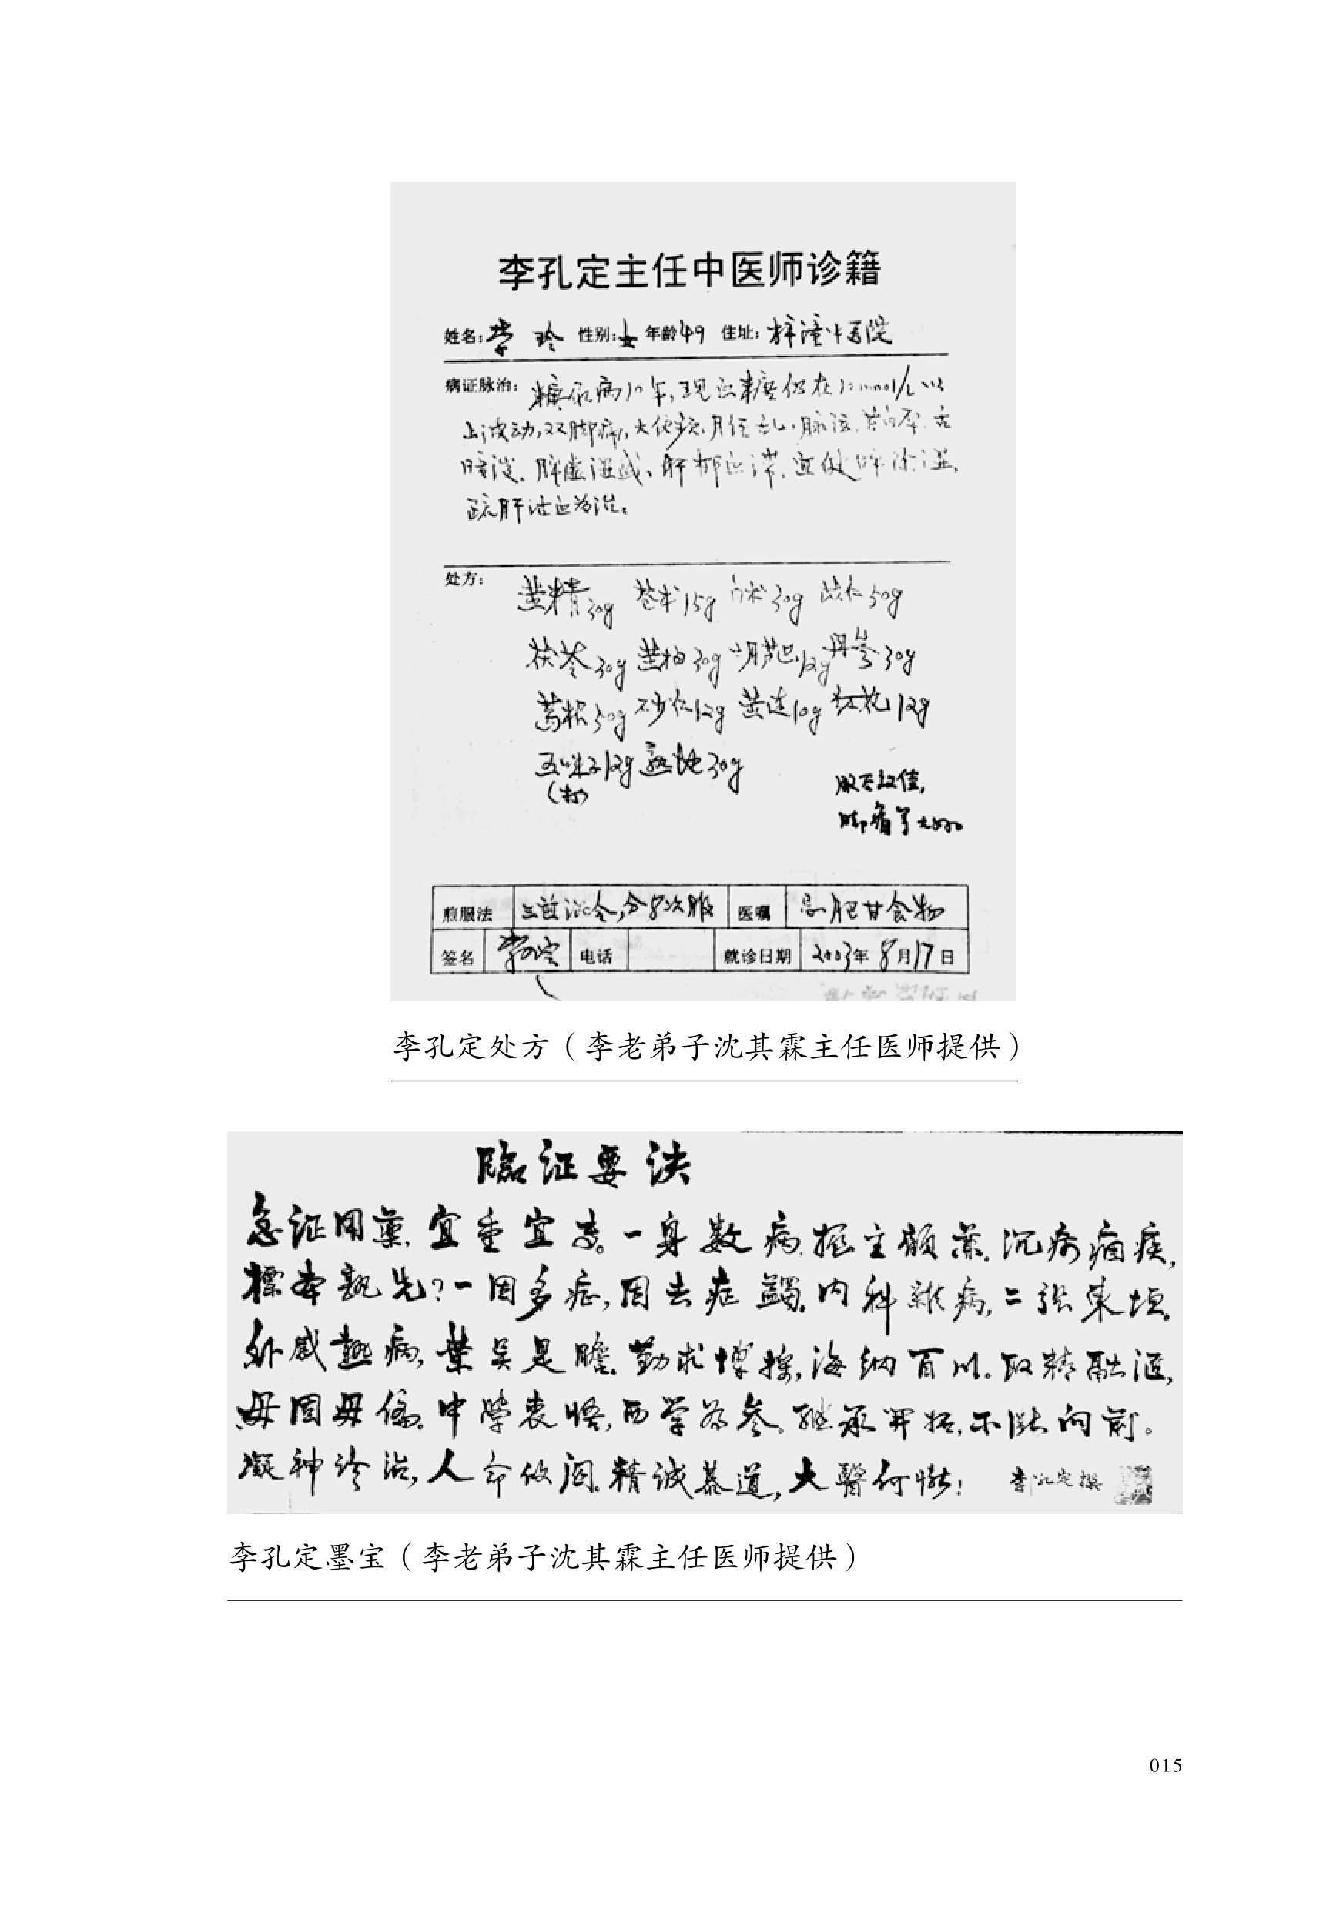 李孔定主任中医师诊籍
姓名: 玲 性别:女 年龄49 住址:梓潼中医院
病证脉治:糖尿病10年,现血糖仍在10mmol/L以
上波动,双脚痛,大便 月经 脉 舌
淡.脾虚湿盛,肝郁血滞,宜健脾除湿,
疏肝活血为治。
处方:
黄精30g 苍术15g 白术30g 50g
茯苓30g 黄柏30g 葫芦巴12g 丹参30g
葛根50g 砂仁12g 黄连10g 红花12g
五味子12g 熟地30g
(打)
服后较佳,
脚痛
煎服法 三煎混合,分8次服 医嘱 忌肥甘食物
签名 李孔定 电话 就诊日期 2003年8月17日
李孔定处方（李老弟子沈其霖主任医师提供）
臨证要诀
急证用藥,宜重宜专。一身數病,握主顧兼.沉疴痼疾,
標本孰先?一因多症,因去症蠲.内科雜病,二张東垣.
外感熱病,葉吴是瞻.勤求博採,海納百川.取精融滙,
毋固毋偏.中學衷悟,西学为参.继承开拓,不断向前。
凝神诊治,人命攸関.精诚慕道,大醫何慚! 李孔定撰
李孔定墨宝（李老弟子沈其霖主任医师提供）
015